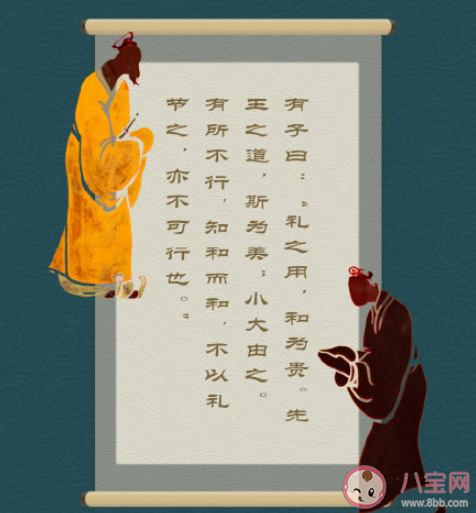 有子曰：“礼之用，和为贵。先
王之道，斯为美；小大由之。
有所不行，知和而和，不以礼
节之，亦不可行也。”
八宝网
www.8bb.com